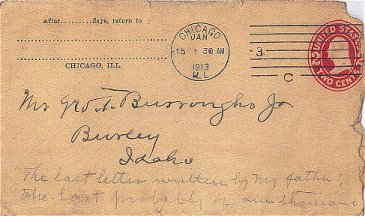 After..........days, return to
CHICAGO, ILL.
CHICAGO
JAN
15 1 30 AM
1913
ILL.
3
C
UNITED STATES
2 2
TWO CENTS
Mr Geo. T. Burroughs Jr
Burley
Idaho
The last letter written by my father,
The last probably of one thousand